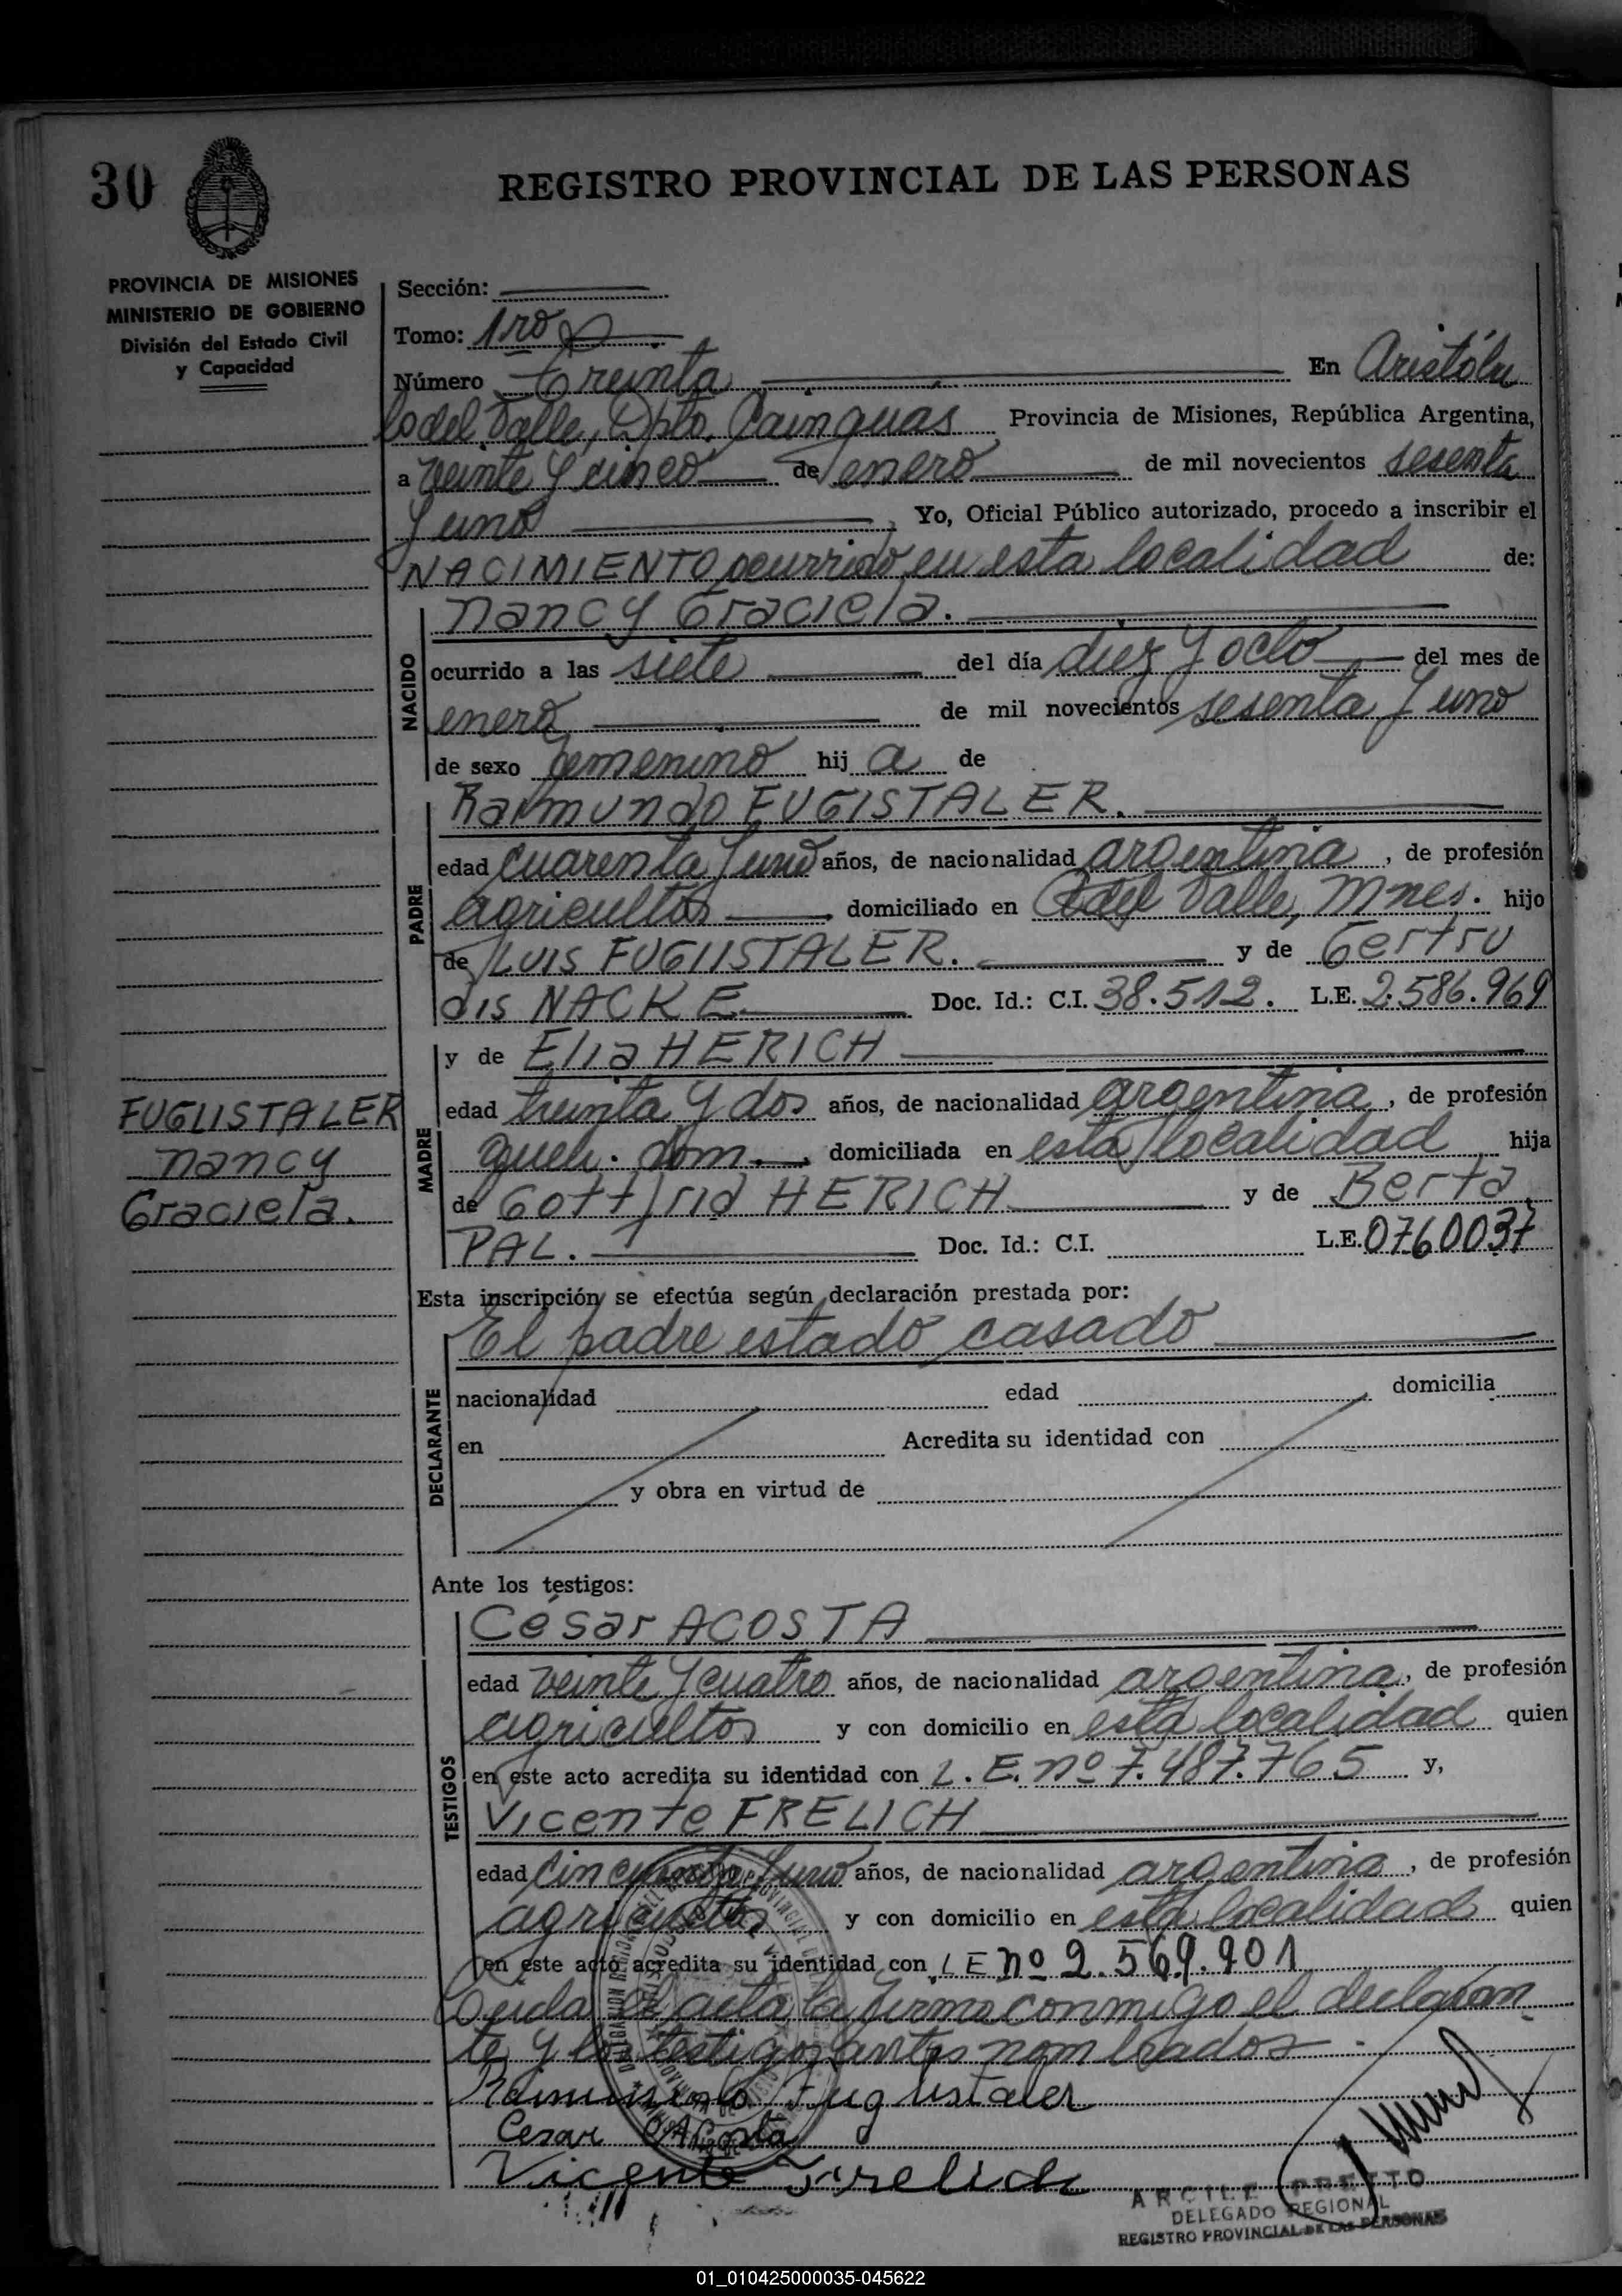 30
REGISTRO PROVINCIAL DE LAS PERSONAS
PROVINCIA DE MISIONES
MINISTERIO DE GOBIERNO
División del Estado Civil
y Capacidad
Sección:
Tomo: 1ro
Número Treinta En Aristóbu
lo del Valle, Dpto. Cainguás Provincia de Misiones, República Argentina,
a veinte y cinco de enero de mil novecientos sesenta
y uno , Yo, Oficial Público autorizado, procedo a inscribir el
NACIMIENTO ocurrido en esta localidad de:
NACIDO
Nancy Graciela.
ocurrido a las siete del día diez y ocho del mes de
enero de mil novecientos sesenta y uno
de sexo femenino hij a de
PADRE
Raimundo FUGISTALER.
edad cuarenta y uno años, de nacionalidad argentina , de profesión
agricultor , domiciliado en A. del Valle, Mnes. hijo
de LUIS FUGIISTALER. y de Gertru
dis NACKE. Doc. Id.: C.I. 38.512. L.E. 2.586.969
MADRE
y de Elia HERICH
edad treinta y dos años, de nacionalidad argentina , de profesión
queh. dom. , domiciliada en esta localidad hija
de Gottfrid HERICH y de Berta
PAL. Doc. Id.: C.I. L.E. 0760037
FUGLISTALER
Nancy
Graciela.
Esta inscripción se efectúa según declaración prestada por:
DECLARANTE
El padre estado casado
nacionalidad edad domicilia
en Acredita su identidad con
y obra en virtud de
Ante los testigos:
TESTIGOS
César ACOSTA
edad veinte y cuatro años, de nacionalidad argentina, de profesión
agricultor y con domicilio en esta localidad quien
en este acto acredita su identidad con L.E. nº 7.487.765 y,
Vicente FRELICH
edad cincuenta y uno años, de nacionalidad argentina , de profesión
agricultor y con domicilio en esta localidad quien
en este acto acredita su identidad con LE nº 2.569.901
Leida el acta la firma conmigo el declaran
te y los testigos antes nombrados.
Raimundo Fuglistaler
Cesar Acosta
Vicente Frelich
ARCILE PRETTO
DELEGADO REGIONAL
REGISTRO PROVINCIAL DE LAS PERSONAS
01_010425000035-045622